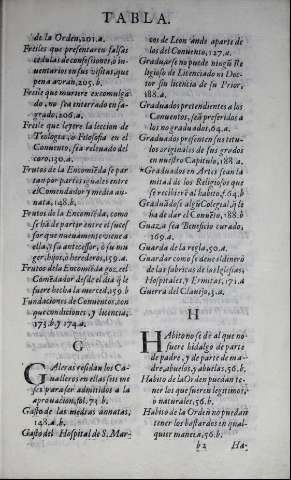 TABLA.
de la Orden, 201.a.
Freiles que presentaren falsas
cedulas de confessiones, ò in-
uentarios en sus visitas, que
pena avran, 205.b.
Freile que muriere excomulga
do, no sea enterrado en sa-
grado, 206.a.
Freile que leyere la leccion de
Teologia, ò Filosofia en el
Conuento, sea releuado del
coro, 130.a.
Frutos de la Encomiēda se par
tan por partes iguales entre
el Comendador y media an
nata, 148.b.
Frutos de la Encomiēda, como
se hà de partir entre el suces
sor que nueuamente viene a
ella, y su antecessor, ò su mu
ger, hijos, ò herederos, 159.a.
Frutos de la Encomiēda goz, eel
Comēdador desde el dia q̄ le
fuere hecha la merced, 159.b
Fundaciones de Conuentos, con
que condiciones, y licencia,
173.b. y 174.a.
G
GAleras residan los Ca-
ualleros en ellas seis me
ses para ser admitidos a la
aprouacion, fol. 74.b.
Gasto de las medias annatas,
148.a.b.
Gasto del Hospital de S. Mar-
cos de Leon ande aparte de
los del Conuento, 127.a.
Graduarse no puede ningū Re
ligioso de Licenciado ni Doc
tor sin licencia de su Prior,
188.a.
Graduados pretendientes a los
Conuentos, seā preferidos a
los no graduados, 64.a.
Graduados presenten sus titu
los originales de sus grados
en nuestro Capitulo, 188.a.
Graduados en Artes sean la
mitad de los Religiosos que
se recibierē al habito, 64.b
Graduādose algū Colegial, q̄ le
ha de dar el Conuēto, 188.b
Guaza sea Beneficio curado,
169.a.
Guarda de la regla, 50.a.
Guardar como se deue el dinero
de las fabricas de las Iglesias,
Hospitales, y Ermitas, 171.a
Guerra del Clauijo, 5.a.
H
HAbito no se dè al que no
fuere hidalgo de parte
de padre, y de parte de ma-
dre, abuelos, y abuelas, 56.b.
Habito de la Ordē puedan te-
ner los que fueren legitimos,
ò naturales, 56.b.
Habito de la Orden no puedan
tener los bastardos en qual-
quier manera, 56.b.
b 2 Ha-